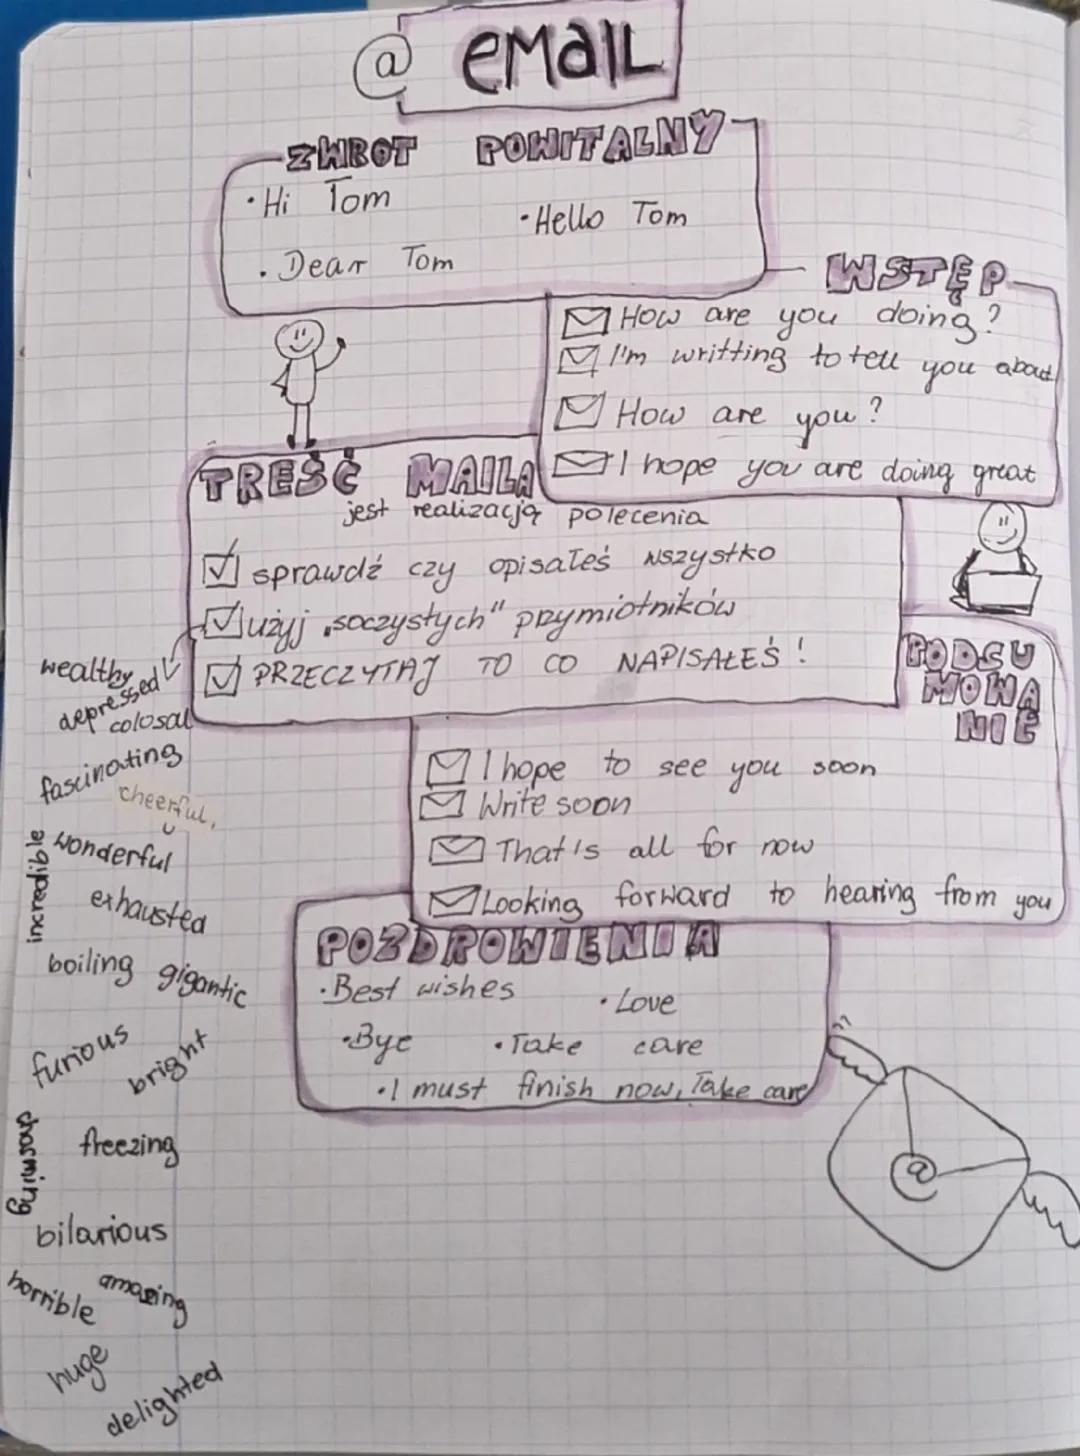 @ EMAIL
ZWROT POWITALNY
• Hi Tom
• Hello Tom
• Dear Tom
WSTĘP
How are you doing?
I'm writting to tell you about
How are you?
I hope you are doing great
TREŚĆ MAILA
jest realizacją polecenia
sprawdź czy opisałeś wszystko
użyj „soczystych" przymiotników
PRZECZYTAJ TO CO NAPISAŁEŚ!
wealthy
depressed
colosal
fascinating
cheerful,
wonderful
incredible
exhausted
boiling gigantic
furious
bright
freezing
bilarious
horrible amazing
huge
delighted
PODSU
MOWA
NIE
I hope to see you soon
Write soon
That's all for now
Looking forward to hearing from you
POZDROWIENIA
• Best wishes
• Love
• Bye
• Take care
• I must finish now, Take care
@